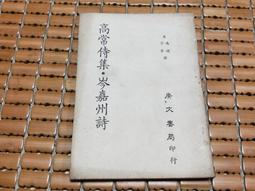 高常侍集・岑嘉州詩
廣文書局印行